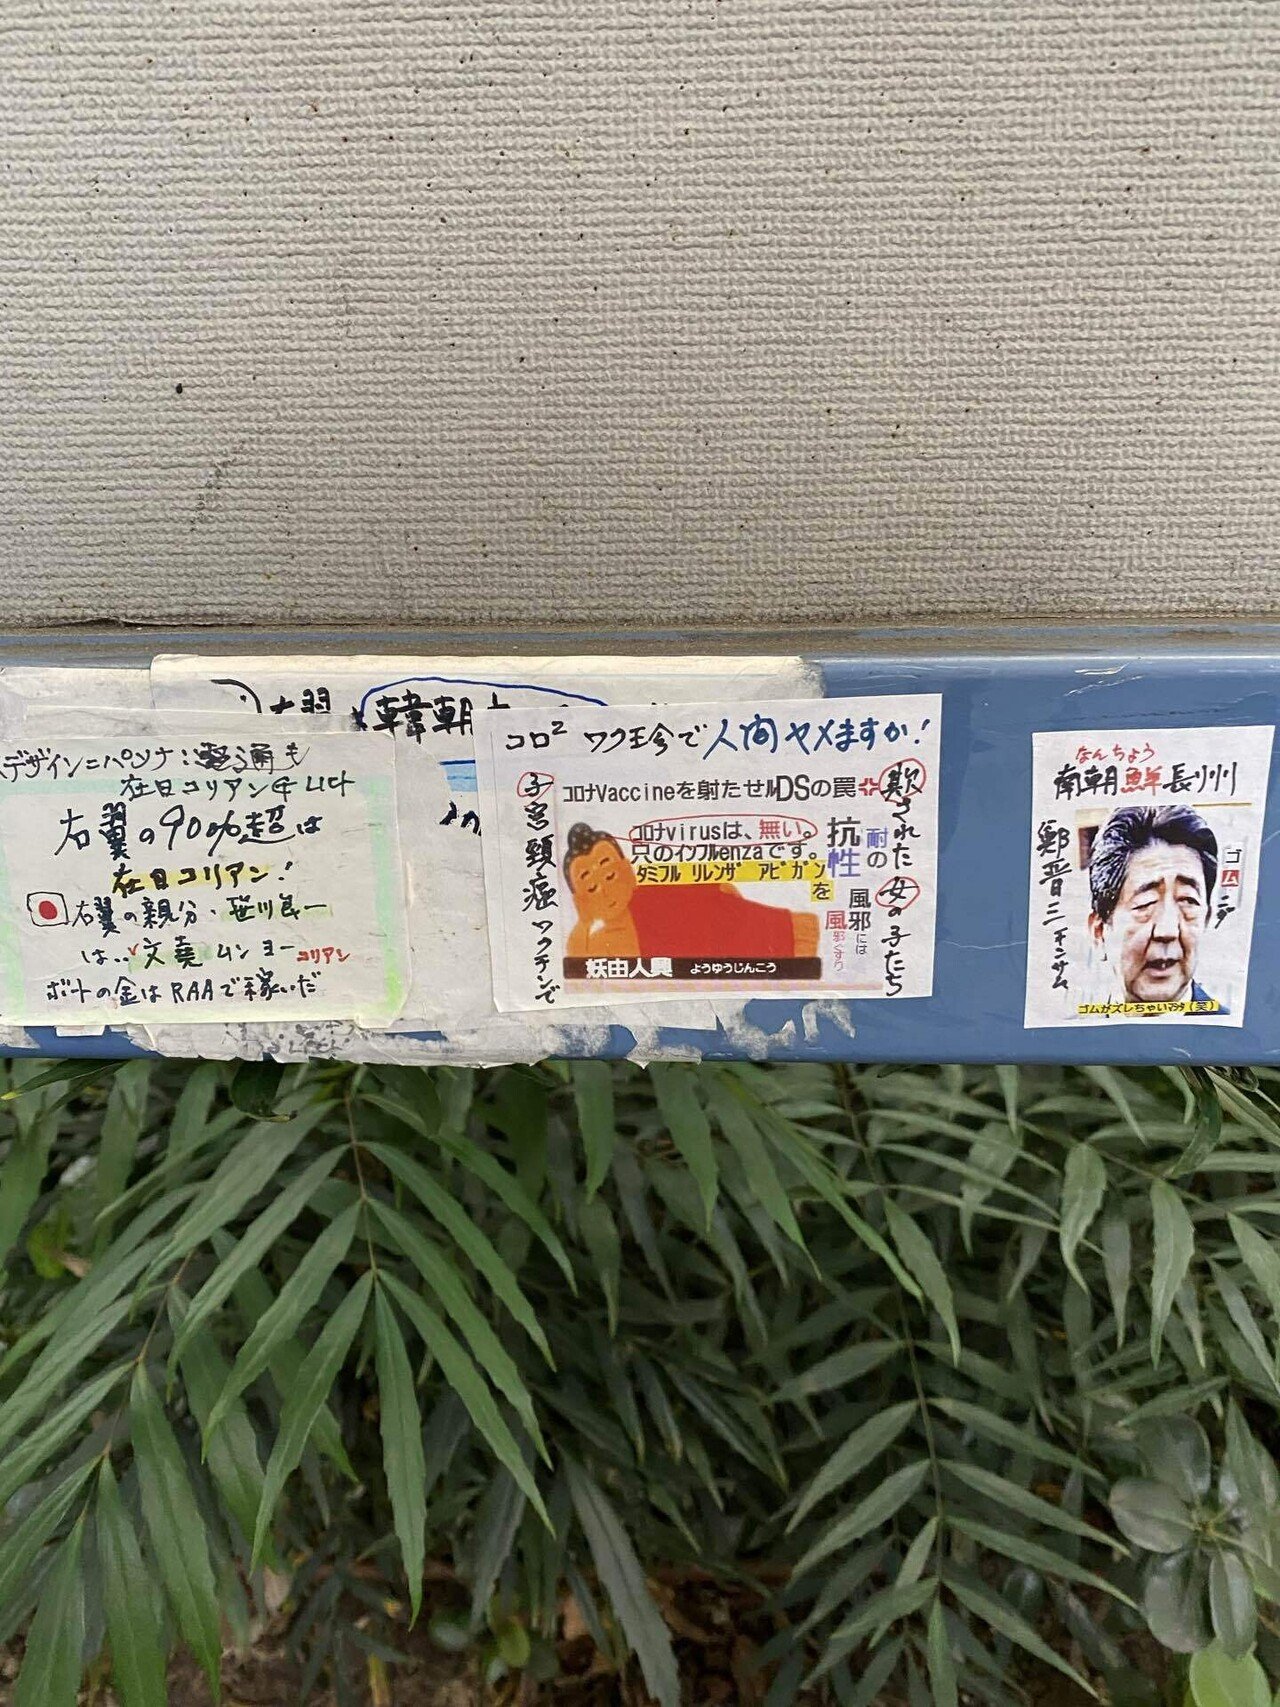 デザイン=パソナ:電通も
在日コリアン
右翼の90%超は
在日コリアン!
右翼の親分・笹川良一
は..文堯 ムン ヨー コリアン
ボートの金はRAAで稼いだ
右翼
韓朝
コロ² ワク王令で人間ヤメますか!
子宮頸癌ワクチンで
コロナVaccineを射たせルDSの罠
欺された女の子たち
コロナvirusは、無い。
只のインフルenzaです。
タミフル リレンザ アビガン
を
抗
性
耐
の
風邪には
風邪ぐすり
妖由人興 ようゆうじんこう
なんちょう
南朝鮮長州
鄭晋三 チンサム
ゴムがズレちゃいマシタ(笑)